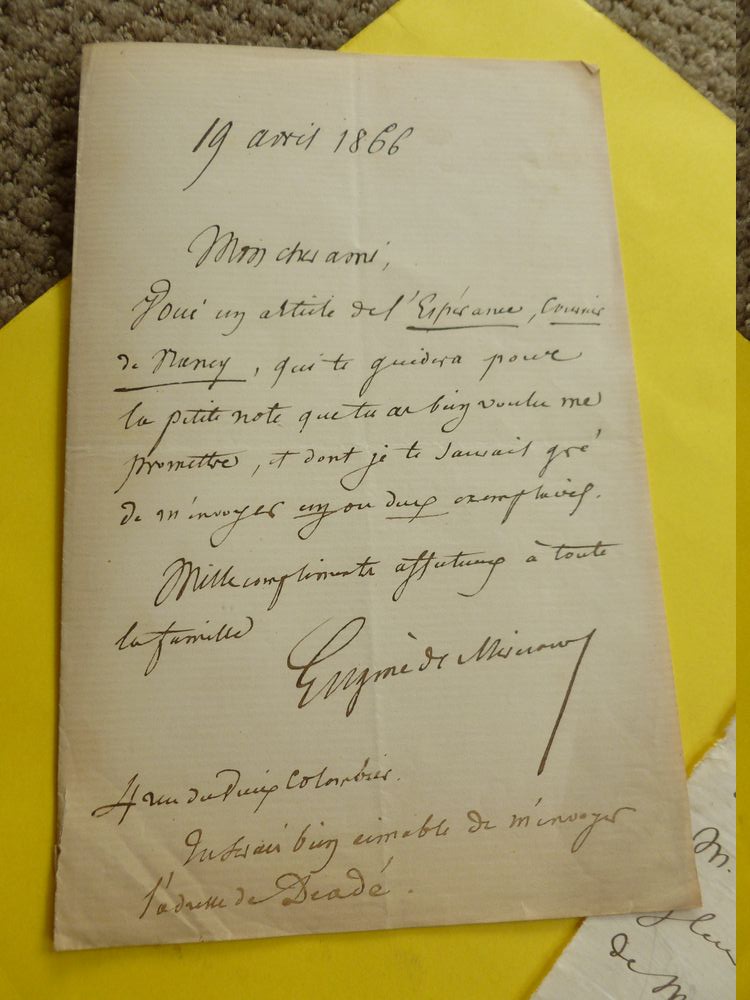 19 avril 1866
Mon cher ami,
Voici un article de l'Espérance, Courrier
de Nancy, qui te guidera pour
la petite note que tu as bien voulu me
promettre, et dont je te saurais gré
de m'envoyer un ou deux exemplaires.
Mille compliments affectueux à toute
la famille
Eugène de Mirecourt
4 rue du Vieux Colombier.
Tu serais bien aimable de m'envoyer
l'adresse de
M.
de